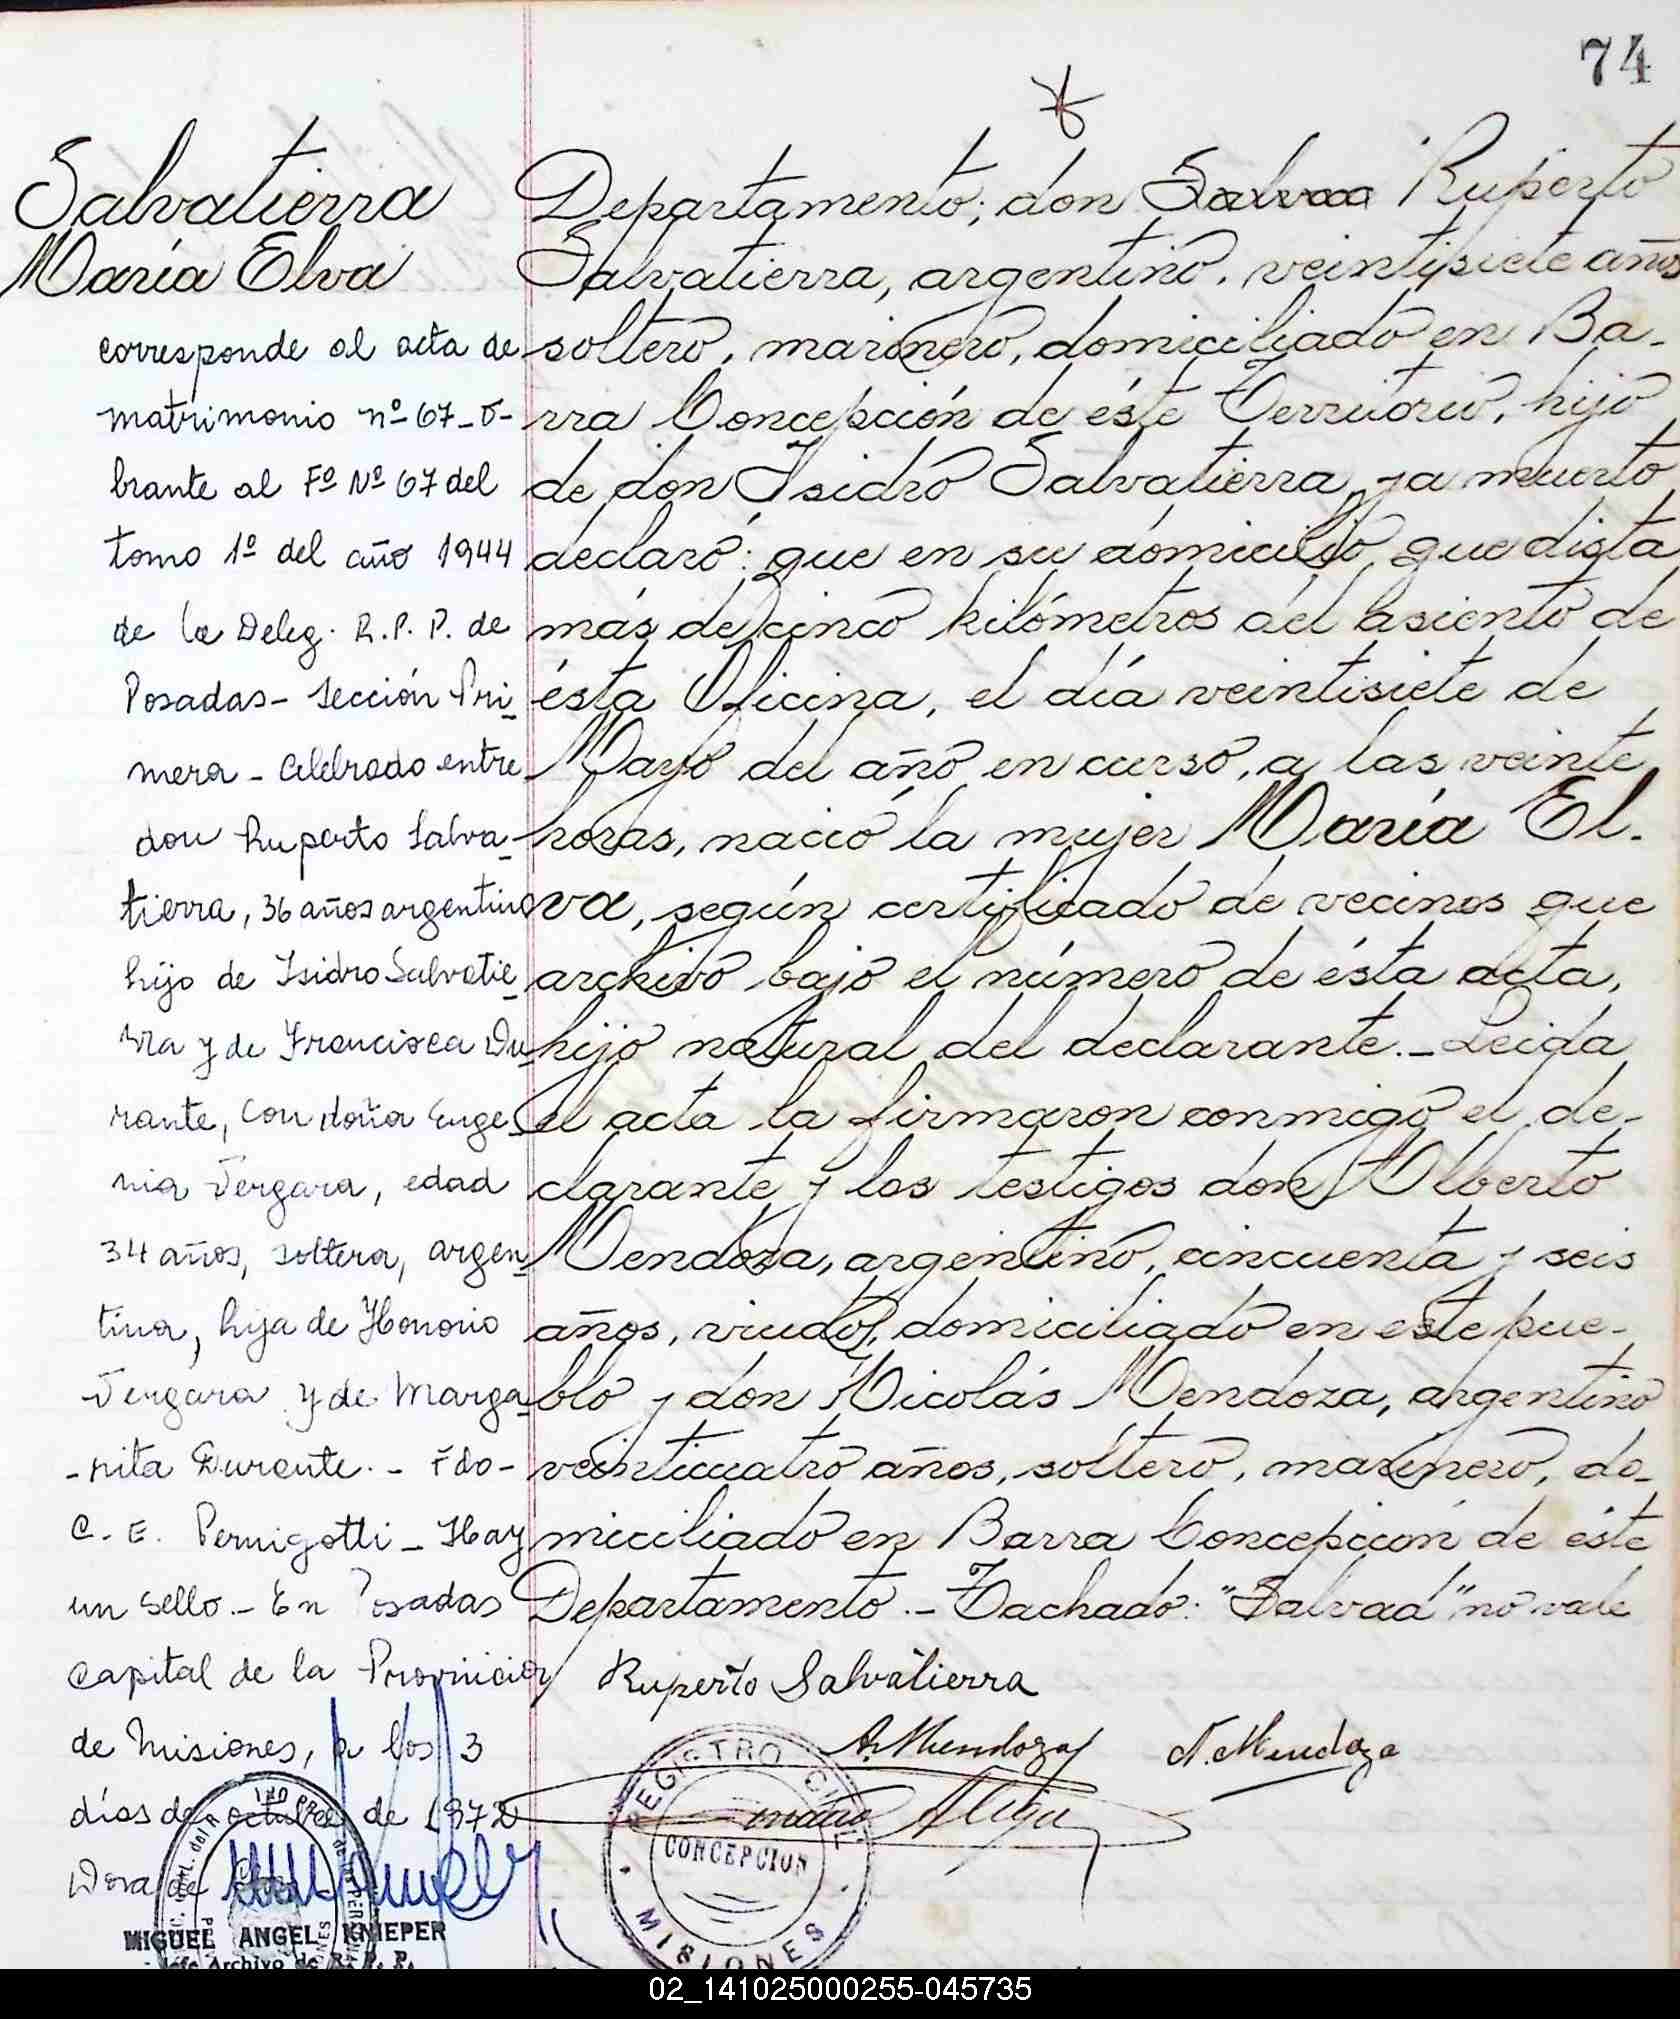 74
Salvatierra
María Elva
corresponde al acta de
matrimonio nº 67 - o-
brante al Fº Nº 67 del
tomo 1º del año 1944
de la Deleg. R. P. P. de
Posadas - Sección Pri-
mera - celebrado entre
don Ruperto Salva-
tierra, 36 años argentino
hijo de Isidro Salvatie-
rra y de Francisca Du-
rante, con doña Euge-
nia Vergara, edad
34 años, soltera, argen-
tina, hija de Honorio
Vergara y de Marga-
-rita Durante. - Fdo -
C. E. Pernigotti - Hay
un sello. - En Posadas
Capital de la Provincia
de Misiones, a los 3
días de octubre de 1972
Dora de
MIGUEL ANGEL KNIEPER
Jefe Archivo de R. P. P.
Departamento; don Salvaa Ruperto
Salvatierra, argentino, veintisiete años
soltero, marinero, domiciliado en Ba-
rra Concepción de éste Territorio, hijo
de don Isidro Salvatierra, ya muerto
declaró: que en su domicilio, que dista
más de cinco kilómetros del asiento de
ésta Oficina, el día veintisiete de
Mayo del año en curso, a las veinte
horas, nació la mujer María El-
va, según certificado de vecinos que
archivo bajo el número de ésta acta,
hijo natural del declarante. - Leida
el acta la firmaron conmigo el de-
clarante y los testigos don Alberto
Mendoza, argentino, cincuenta y seis
años, viudo, domiciliado en este pue-
blo y don Nicolás Mendoza, argentino
veinticuatro años, soltero, marinero, do-
miciliado en Barra Concepción de éste
Departamento. - Tachado: "Salvaa" no vale
Ruperto Salvatierra
A. Mendoza N. Mendoza
REGISTRO CIVIL
CONCEPCION
MISIONES
02_141025000255-045735